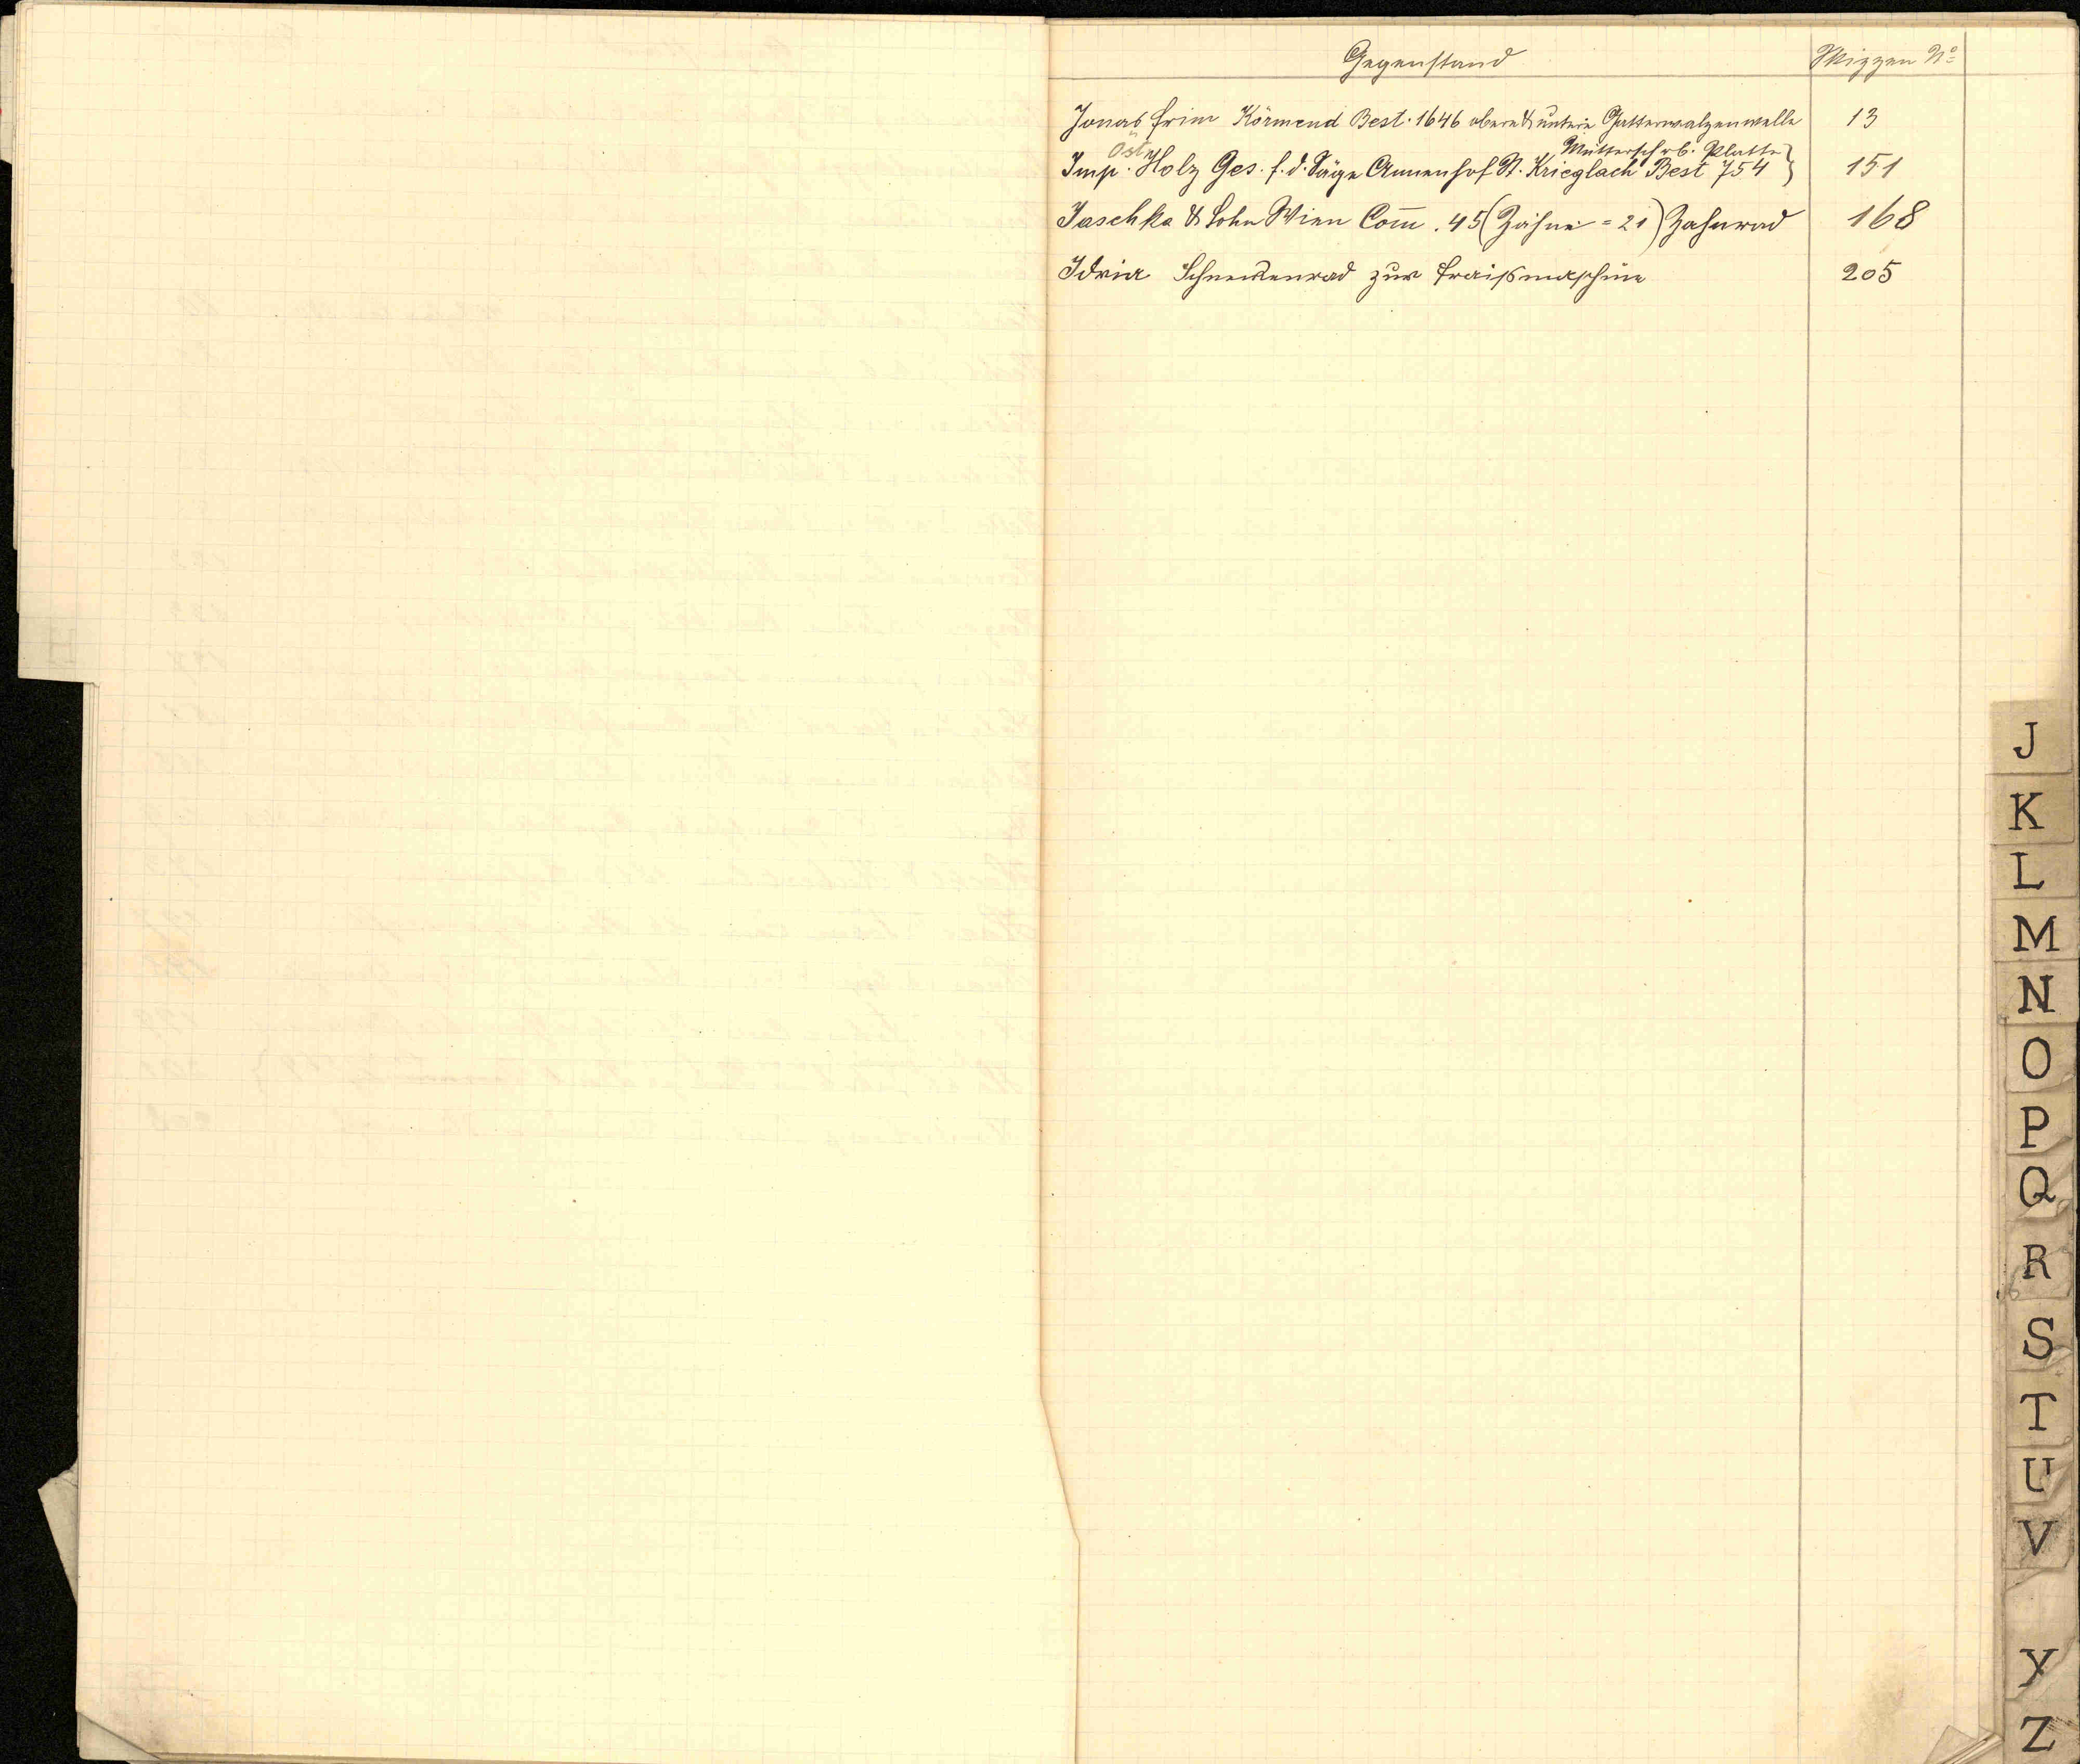 Gegenstand Skizzen No
Jonas Frim Körmend Best. 1646 obere & untere Gatterwalzenwelle 13
Öst. Mutterschrb. Platte
Imp. Holz Ges. f. d. Säge Annenhof St. Krieglach Best 754 } 151
Jaschka & Sohn Wien Com̄. 45 (Zähne = 21) Zahnrad 168
Idria Schneckenrad zur Fraißmaschine 205
H
J
K
L
M
N
O
P
Q
R
S
T
U
V
Y
Z